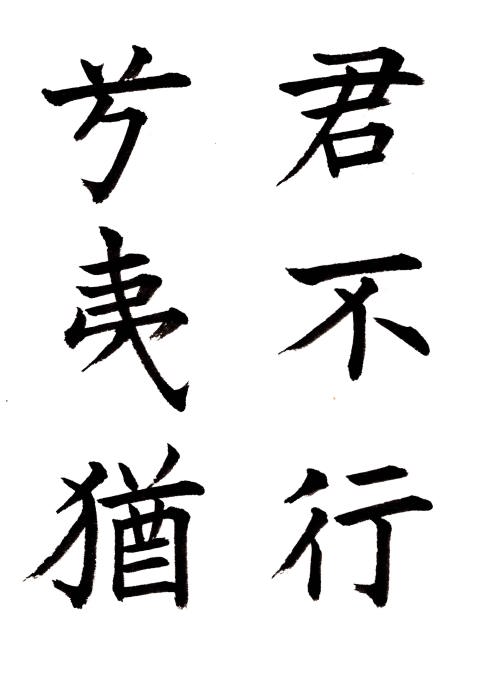 君不行
兮夷猶